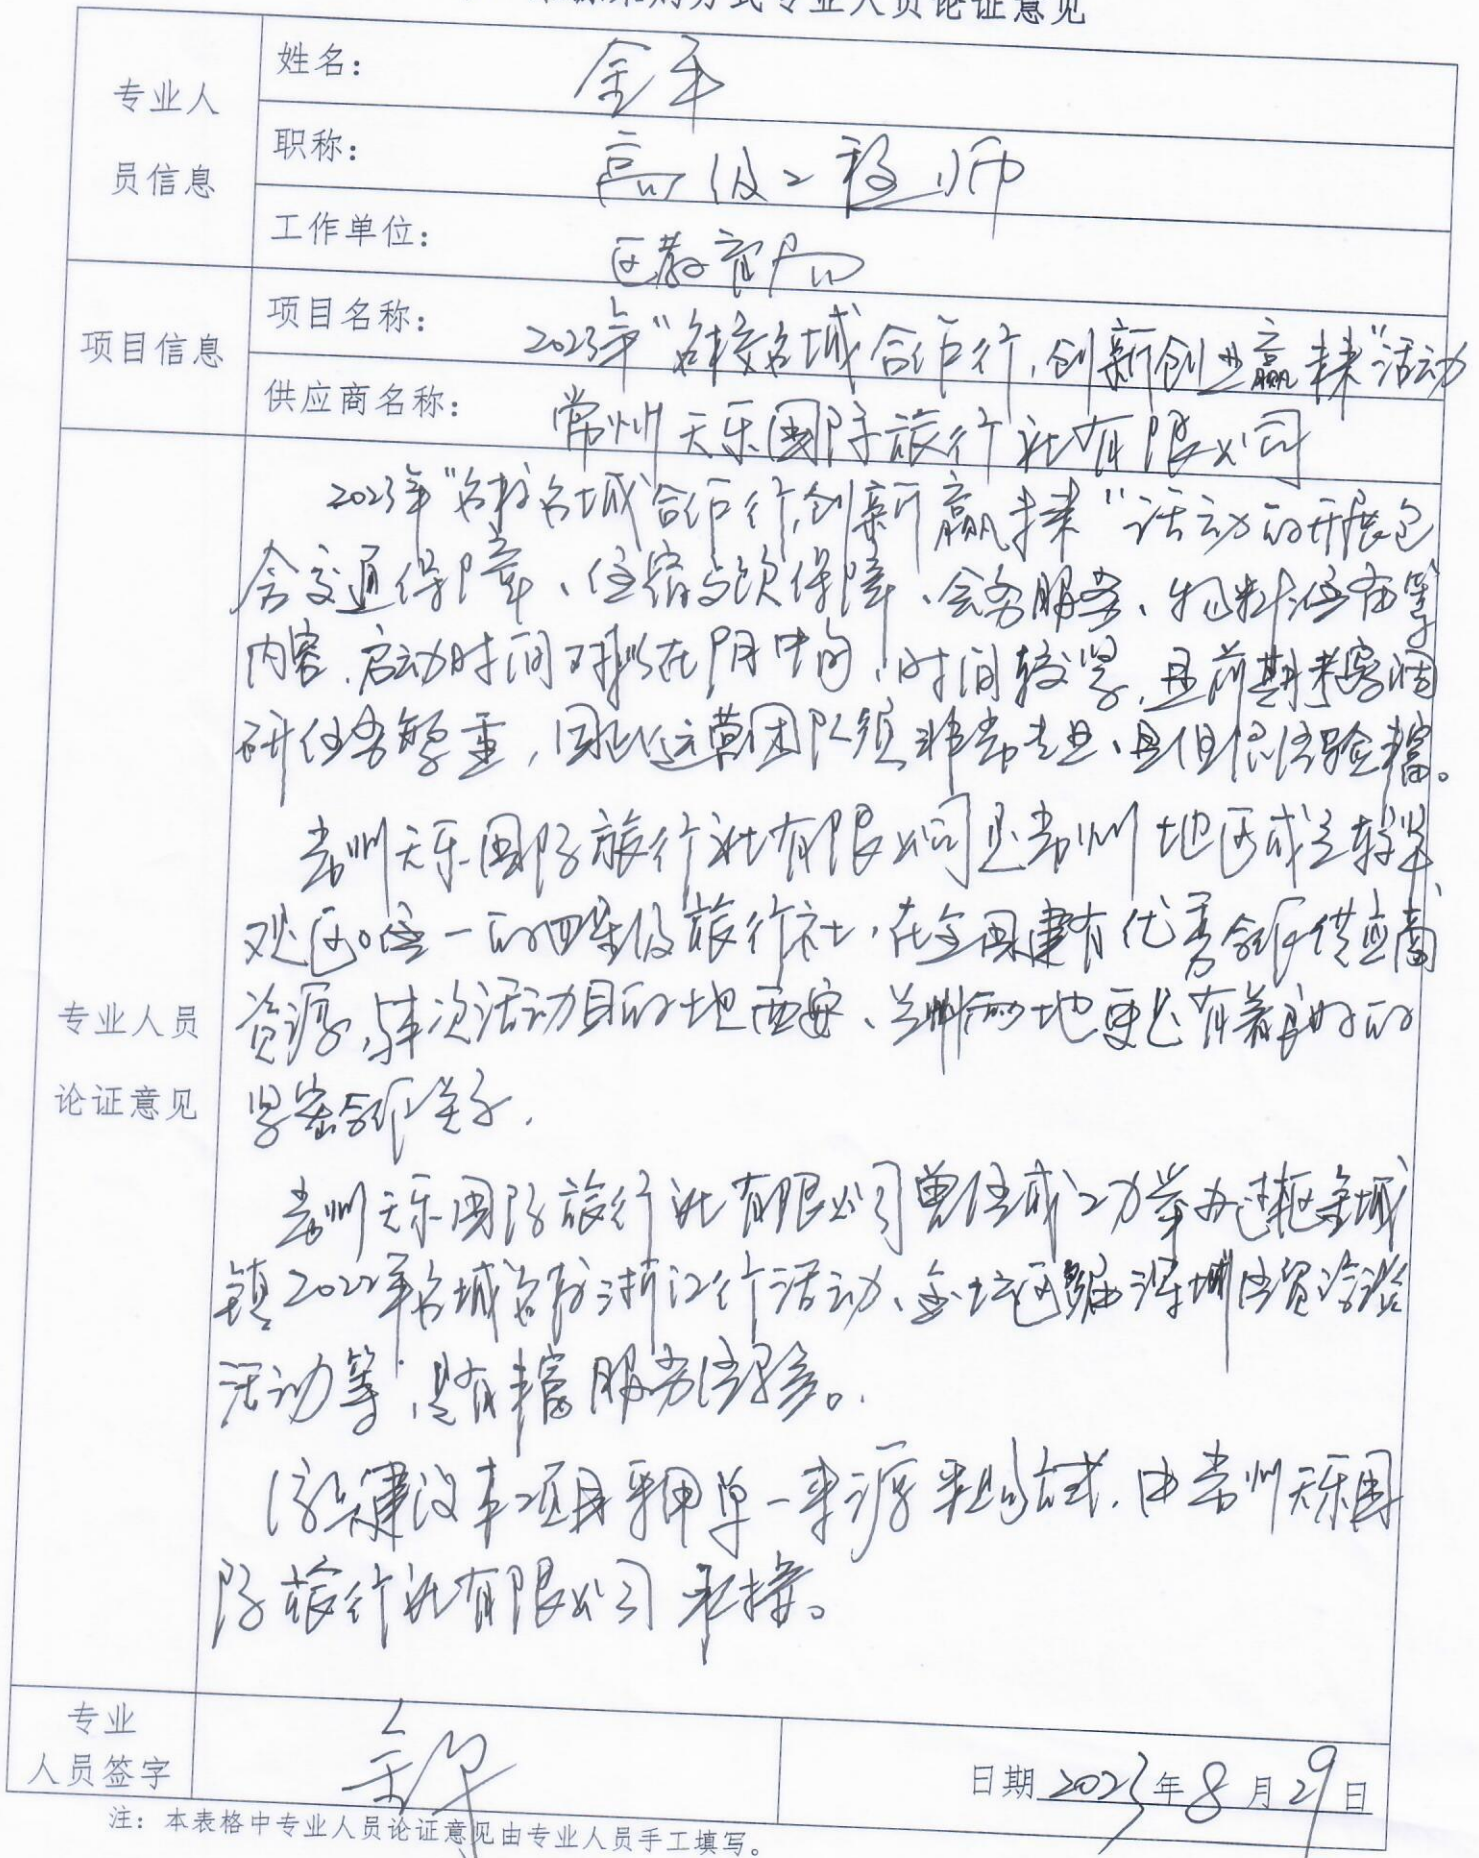 采购方式专业人员论证意见
专业人
员信息
姓名：
金平
职称：
高级工程师
工作单位：
区教育局
项目信息
项目名称：
2023年“名校名城合作行,创新创业赢未来”活动
供应商名称：
常州天乐国际旅行社有限公司
专业人员
论证意见
2023年“名校名城合作行,创新赢未来”活动的开展包
含交通保障、住宿与饮保障、会务服务、物料任务等
内容.启动时间拟在9月中旬,时间较紧,且前期考察调
研任务繁重,因此运营团队须非常专业、且经验丰富。
常州天乐国际旅行社有限公司是常州地区成立较早
唯一的四星级旅行社,在全国建有优秀合作供应商
资源,与本次活动目的地西安、兰州两地更是有着良好的
紧密合作关系.
常州天乐国际旅行社有限公司曾经成功举办过金城
镇2022年名城名校浙江行活动、金坛区深圳经贸洽谈
活动等,具有丰富服务经验。
综上建议本项目采用单一来源采购方式,由常州天乐国
际旅行社有限公司承接。
专业
人员签字
金平
日期 2023年8月29日
注：本表格中专业人员论证意见由专业人员手工填写。